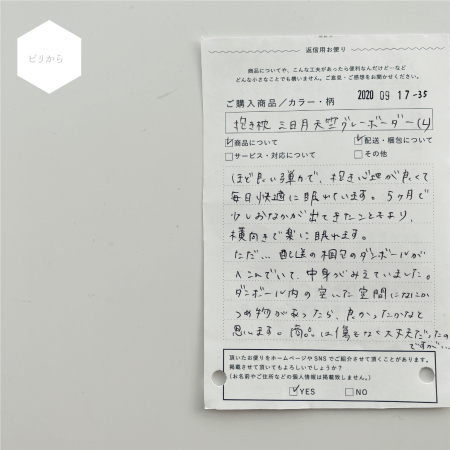 ピリから
返信用お便り
商品についてや、こんな工夫があったら便利なんだけど…など
どんな小さなことでも構いません。ご意見・ご感想をお聞かせください。
2020 09 17-35
ご購入商品/カラー・柄
抱き枕 三日月天竺グレーボーダー(L)
☑商品について ☑配送・梱包について
□サービス・対応について □その他
ほど良い弾力で、抱き心地が良くて
毎日快適に眠れています。5ヶ月で
少しおなかが出てきたこともあり、
横向きで楽に眠れます。
ただ… 配送の梱包のダンボールが
へこんでいて、中身がみえていました。
ダンボール内の空いた空間になにか
つめ物があったら、良かったかなと
思います。商品は傷もなく大丈夫だったの
ですが…
頂いたお便りをホームページや SNS でご紹介させて頂くことがあります。
掲載させて頂いてもよろしいでしょうか?
(お名前やご住所などの個人情報は掲載致しません。)
☑YES □NO